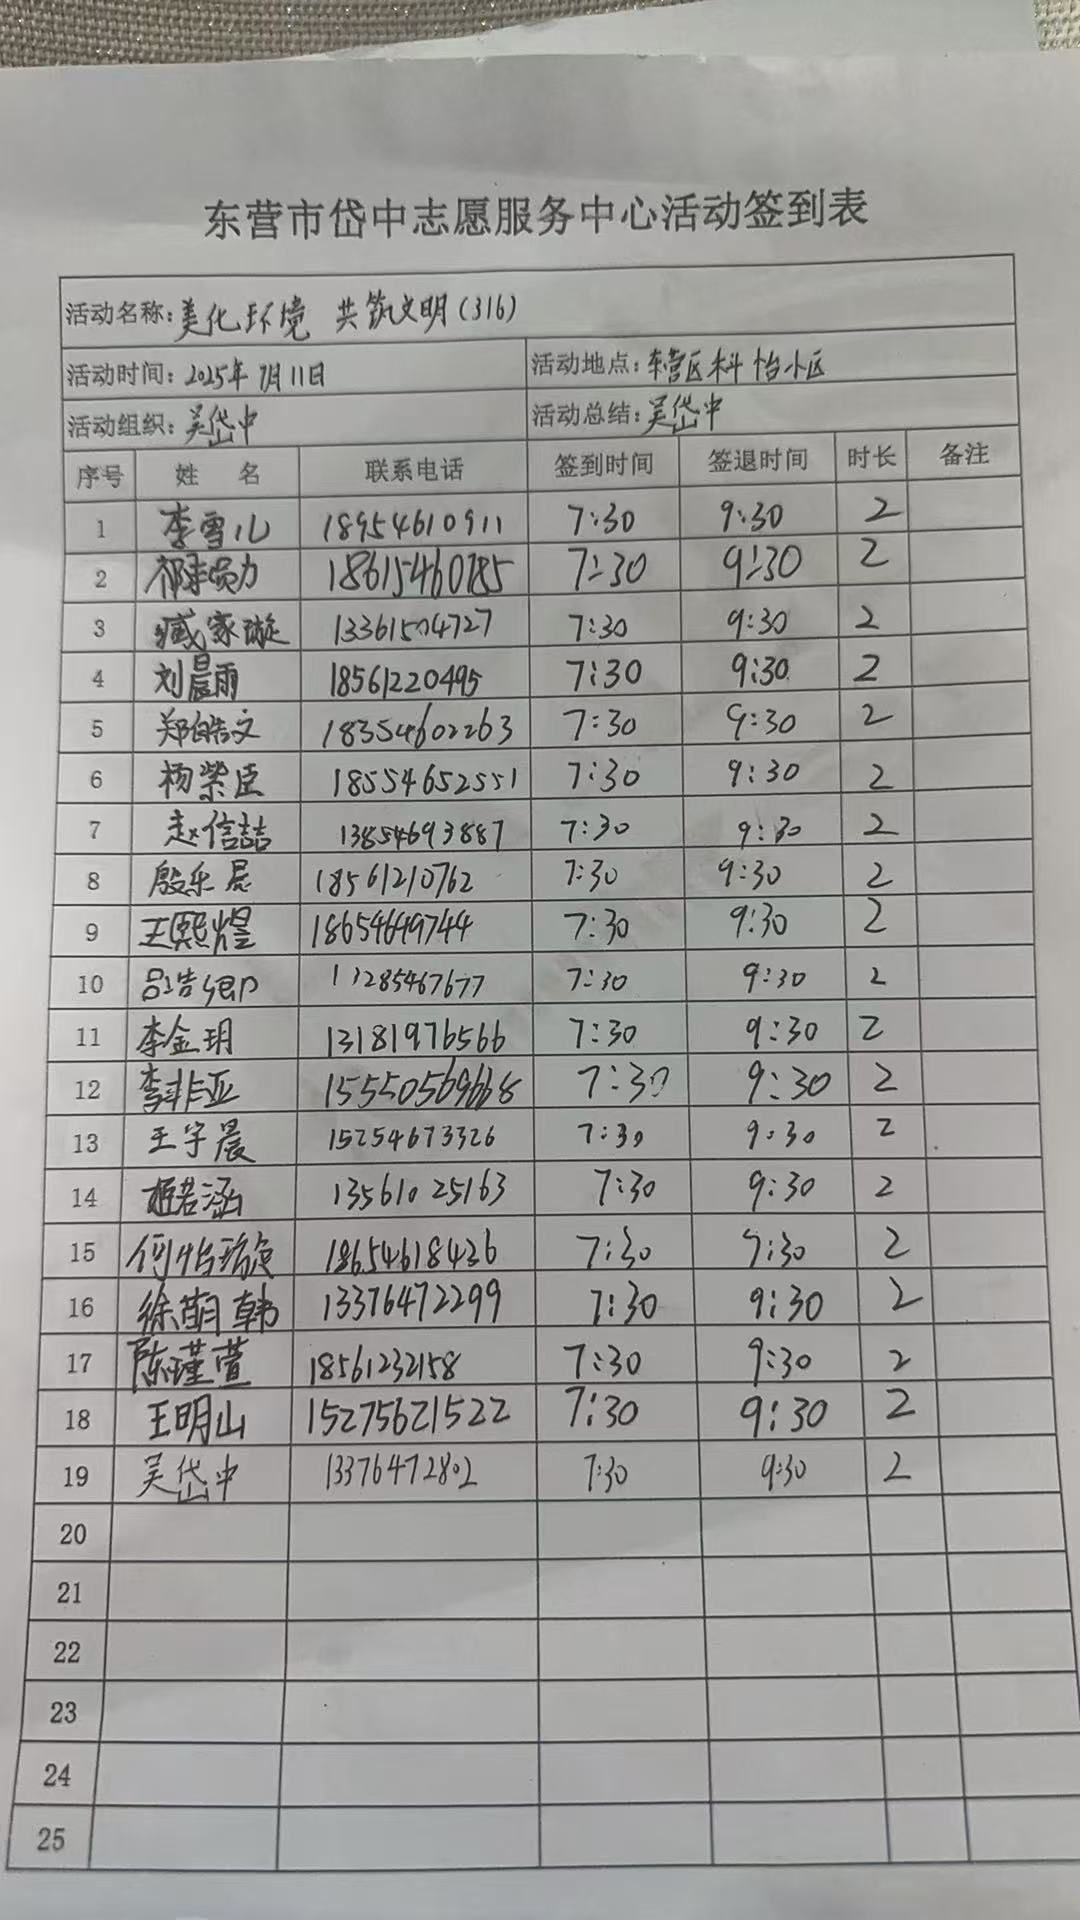 东营市岱中志愿服务中心活动签到表
活动名称：美化环境 共筑文明（316）
活动时间：2025年7月11日 活动地点：东营区科怡小区
活动组织：吴岱中 活动总结：吴岱中
序号 姓名 联系电话 签到时间 签退时间 时长 备注
1 李雪儿 18954610911 7:30 9:30 2
2 18615460785 7:30 9:30 2
3 臧家璇 13361504727 7:30 9:30 2
4 刘晨雨 18561220495 7:30 9:30 2
5 郑皓文 18354602263 7:30 9:30 2
6 杨紫臣 18554652551 7:30 9:30 2
7 赵信喆 13854693887 7:30 9:30 2
8 殷乐晨 18561210762 7:30 9:30 2
9 王熙煜 18654649744 7:30 9:30 2
10 7:30 9:30 2
11 李金玥 13181976566 7:30 9:30 2
12 李非亚 15550569668 7:30 9:30 2
13 王宇晨 15254673326 7:30 9:30 2
14 姬若涵 13561025163 7:30 9:30 2
15 何怡璇 18654618426 7:30 9:30 2
16 徐萌韩 13376472299 7:30 9:30 2
17 陈瑾萱 18561232158 7:30 9:30 2
18 王明山 15275621522 7:30 9:30 2
19 吴岱中 13376472802 7:30 9:30 2
20
21
22
23
24
25